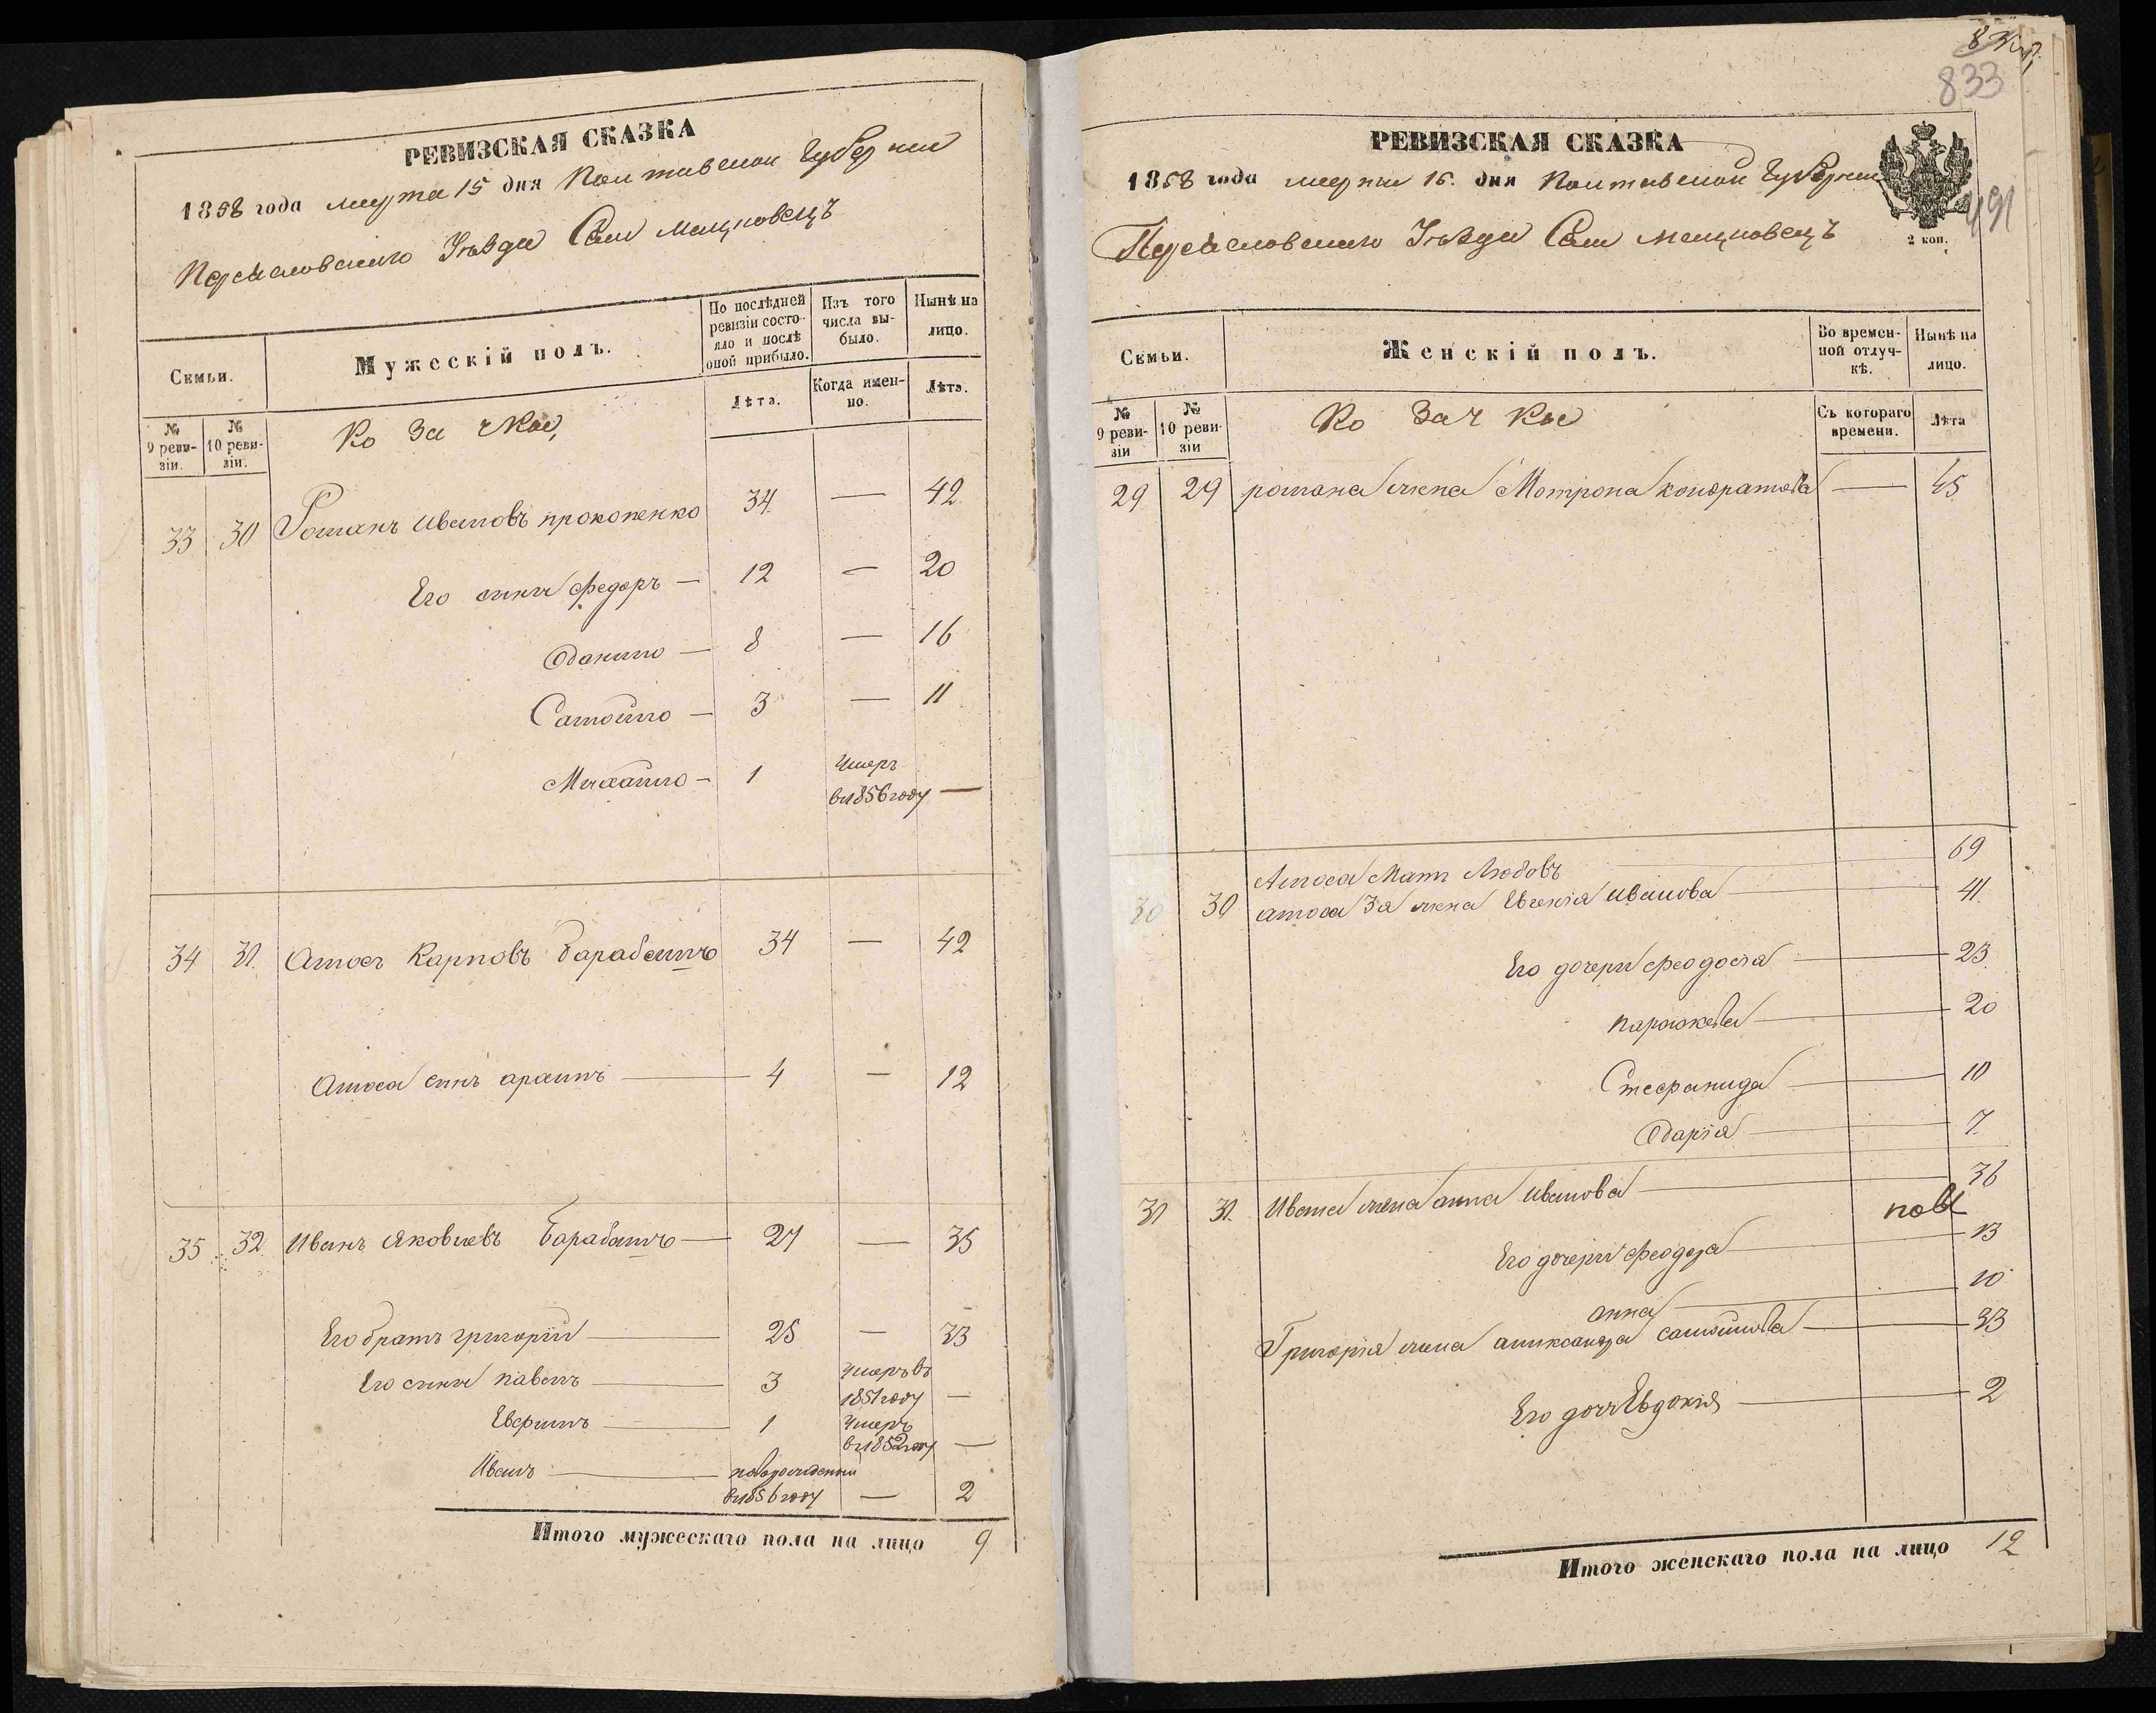 РЕВИЗСКАЯ СКАЗКА
1858 года марта 15 дня Полтавской Губернии
Переяславского Уезда Села Мацковецъ
Семьи.
Мужескій полъ.
По послѣдней ревизіи состояло и послѣ оной прибыло.
Изъ того числа выбыло.
Нынѣ на лицо.
№ 9 ревизіи.
№ 10 ревизіи.
Козачкие
Лѣта.
Когда именно.
Лѣта.
33 30 Романъ Ивановъ прокопенко 34. — 42
Его сини Федоръ — 12 — 20
Данило — 8 — 16
Самойло — 3 — 11
Михайло — 1 Умеръ
в 1856 году —
34 31. Амосъ Карповъ Барабашъ 34 — 42
Амоса синъ — 4 — 12
35 32 Иванъ Яковлевъ Барабашъ — 27 — 35
Его братъ григорій — 25 — 33
Его сини павелъ — 3 Умеръ въ
1851 году —
Евфимъ — 1 Умеръ
в 1852 году —
Иванъ — новорожденний
в 1856 году — 2
Итого мужескаго пола на лицо 9
8
833
491
РЕВИЗСКАЯ СКАЗКА
1858 года марта 15. дня Полтавской Губернии
2 коп.
Переяславского Уезда Села Мацковецъ
Семьи.
Женскій полъ.
Во временной отлучкѣ.
Нынѣ на лицо.
№ 9 ревизіи
№ 10 ревизіи
Козачкие
Съ котораго времени.
Лѣта
29 29 романа жена Мотрона кондратова — 45
Амоса Мать Любовъ — 69
30 30 амоса жена Евгенія Иванова — 41.
Его дочери Феодосія — 23
параскева — 20
Стефанида — 10
Одарія — 7.
31 31. Ивана жена анна Иванова — 36
Его дочери — 13
анна — 10
Григорія жена самойлова — 33
Его дочь Евдокия — 2
Итого женскаго пола на лицо 12